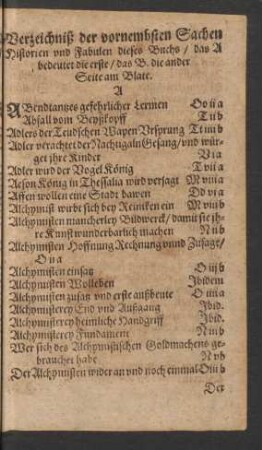 Verzeichniß der vornembsten Sachen
Historien vnd Fabulen dieses Buchs / das A
bedeutet die erste / das B. die ander
Seite am Blatt.
A
ABendtantzes gefehrlicher Lermen
Abfall vom
Adlers der Teudschen Wapen Vrsprung
Adler verachtet der Nachtigaln Gesang / vnd wür-
get ihre Kinder V i a
Adler wird der Vogel König
Aeson König in Thessalia wird verjagt
Affen wollen eine Stadt bawen Dd v a
Alchymist wirbt sich bey Reiniken ein
Alchymisten mancherley Bildwerck / damit sie ih-
re Kunst wunderbarlich machen N n b
Alchymisten Hoffnung Rechnung vnnd Zusage /
O v a
Alchymisten einsatz
Alchymisten Wolleben Ibidem
Alchymisten zusatz vnd erste außbeute
Alchymisterey End vnd Außgang Ibid.
Alchymisterey heimliche Handgriff Ibid.
Alchymisterey Fundament
Wer sich des Alchymistischen Goldmachens ge-
brauchet habe N v b
Der Alchymisten wider an vnd noch einmal
Der